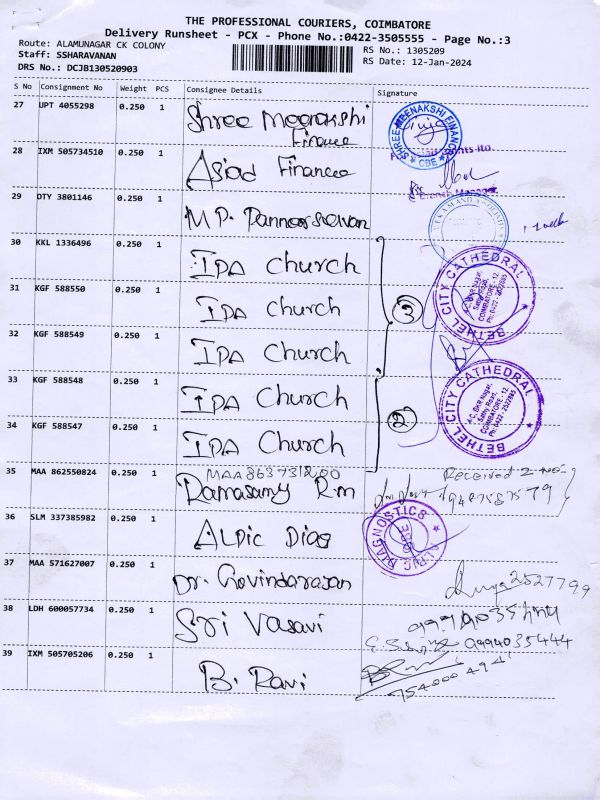 THE PROFESSIONAL COURIERS, COIMBATORE
Delivery Runsheet - PCX - Phone No.:0422-3505555 - Page No.:3
Route: ALAMUNAGAR CK COLONY
Staff: SSHARAVANAN
DRS No.: DCJB130520903
RS No.: 1305209
RS Date: 12-Jan-2024
S No Consignment No Weight PCS Consignee Details Signature
27 UPT 4055298 0.250 1 Shree Meenakshi Finance
SHREE MEENAKSHI FINANCE
* CBE *
28 IXM 505734510 0.250 1 Asiad Finance
Branch Manager
29 DTY 3801146 0.250 1 M.P. Panneerselvan
30 KKL 1336496 0.250 1 IPA Church
31 KGF 588550 0.250 1 IPA Church
3
BETHEL CITY CATHEDRAL
32 KGF 588549 0.250 1 IPA Church
33 KGF 588548 0.250 1 IPA Church
2
BETHEL CITY CATHEDRAL
COIMBATORE - 12.
Ph: 0422 - 2522885
34 KGF 588547 0.250 1 IPA Church
MAA863731200
35 MAA 862550824 0.250 1 Ramasamy R.m
Received 2 No
9487587579
36 SLM 337385982 0.250 1 ALPIC Diag
ALPIC DIAGNOSTICS
CBE
37 MAA 571627007 0.250 1 Dr. Govindarasan
2527799
38 LDH 600057734 0.250 1 Sri Vasavi
9994035444
9994035444
39 IXM 505705206 0.250 1 B. Ravi